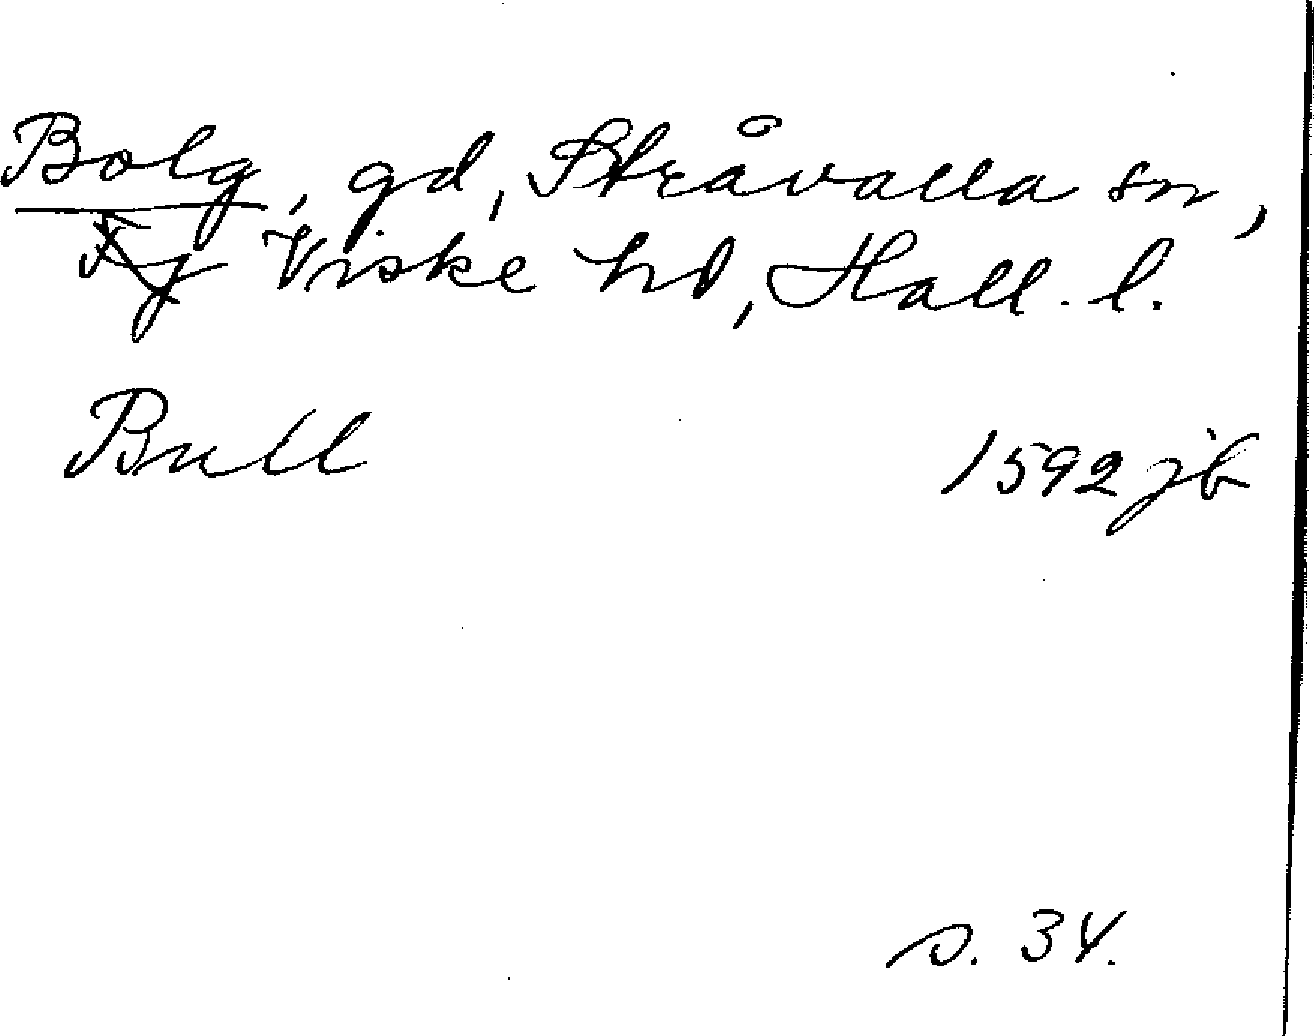 Bolg, gd, Stråvalla sn,
Fj Viske hd, Hall. l.
Bull 1592 jb
s. 34.